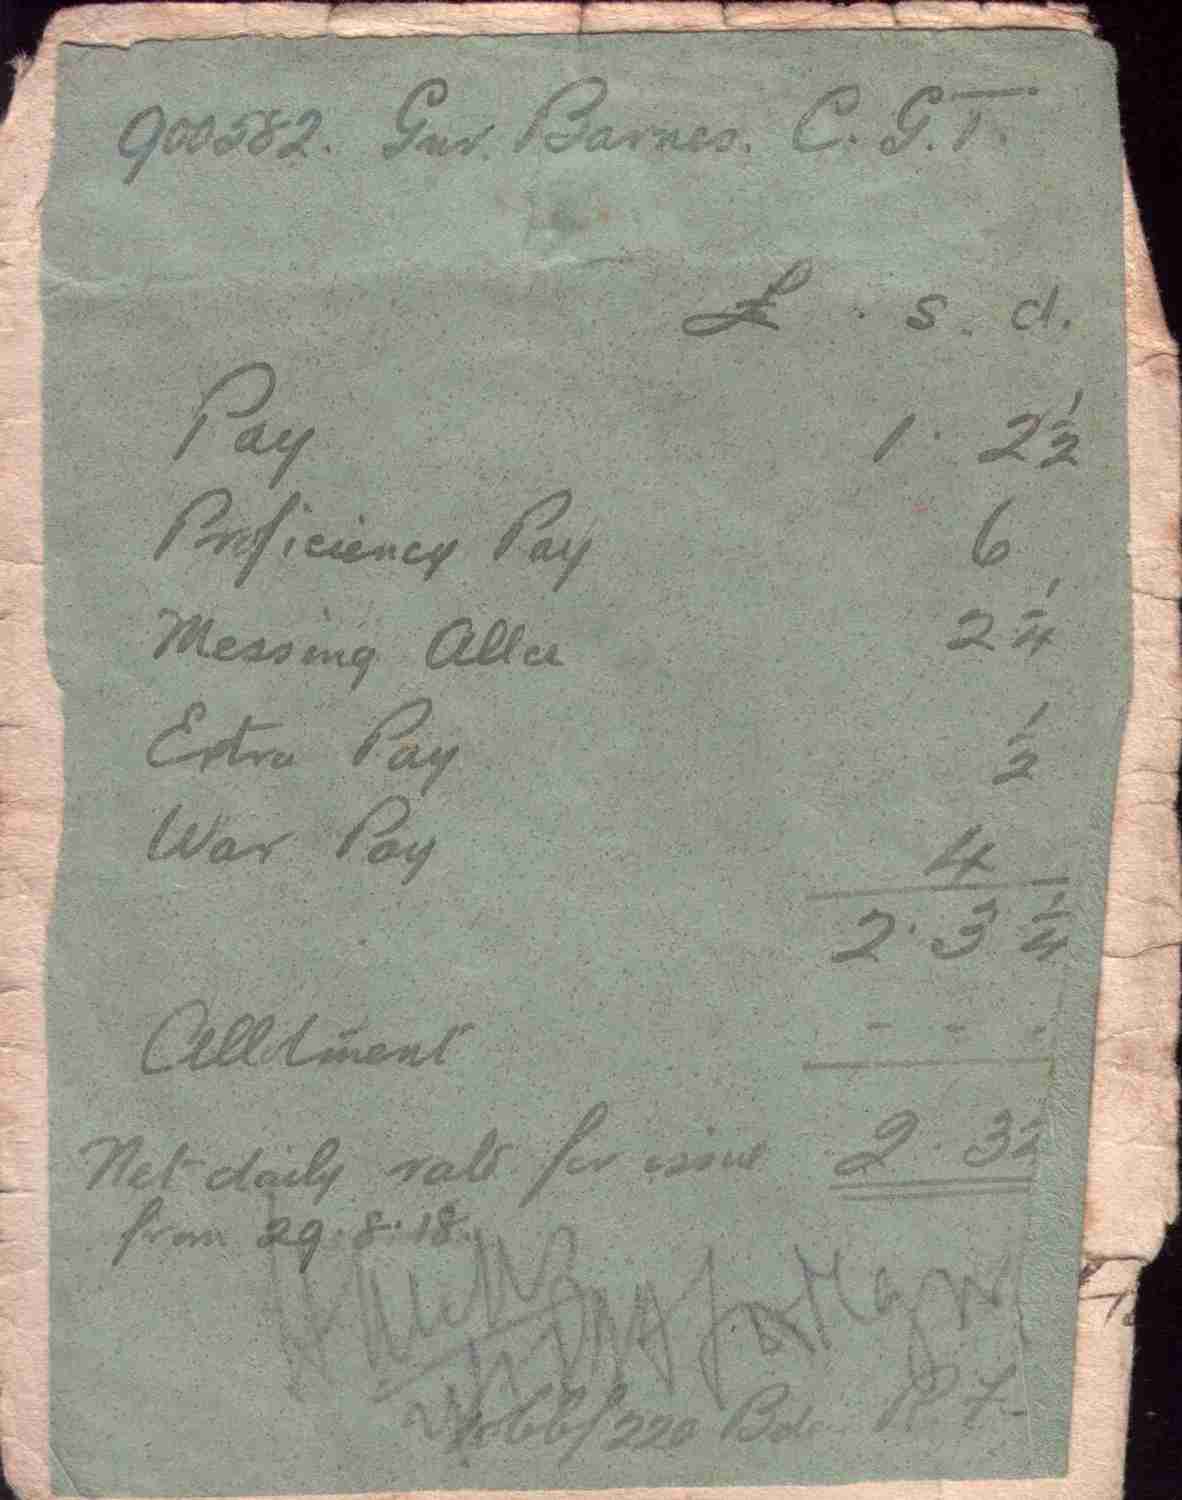 900582. Gnr. Barnes. C. G. T.
£ . s . d.
Pay 1 . 2½
Proficiency Pay 6
Messing Allce 2¼
Extra Pay ½
War Pay 4
2 . 3 ¼
Allotment - - -
Net daily rate for issue 2 . 3
from 29.8.18.
220 Bde R.F.